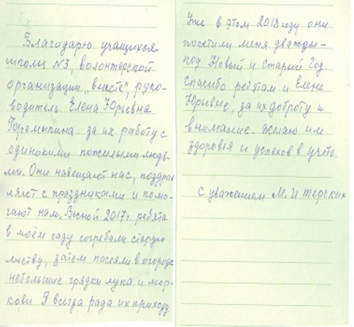 Благодарю учащихся
школы №3, волонтерской
организации „вместе" руко-
водитель Елена Юрьевна
за их работу с
одинокими пожилыми людь-
ми. Они навещают нас, поздрав
ляют с праздниками и помо-
гают нам. Весной 2017г. ребята
в моём саду сгребали старую
листву, затем посеяли в огороде
небольшие грядки лука и мор-
кови Я всегда рада их приходу
Уже в этом 2018 году они
посетили меня дважды-
под Новый и Старый Год.
Спасибо ребятам и Елене
Юрьевне, за их доброту и
внимание. Желаю им
здоровья и успехов в учёбе
С уважением М.